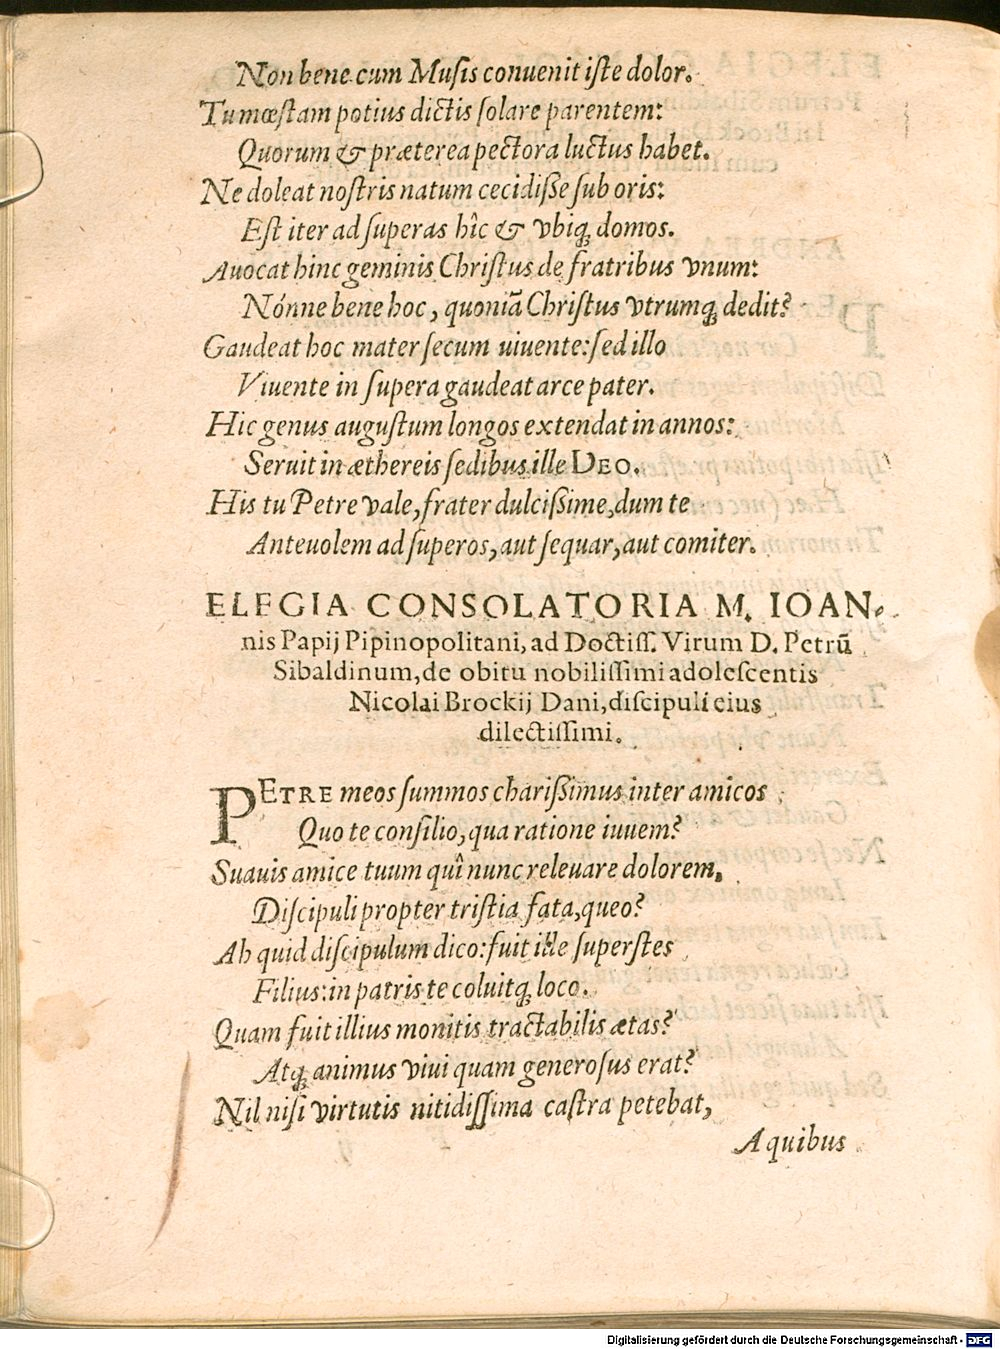 Non bene cum Musis conuenit iste dolor.
Tu mœstam potius dictis solare parentem:
Quorum & præterea pectora luctus habet.
Ne doleat nostris natum cecidisse sub oris:
Est iter ad superas hîc & vbiq; domos.
Auocat hinc geminis Christus de fratribus vnum:
Nónne bene hoc, quoniā Christus vtrumq; dedit?
Gaudeat hoc mater secum uiuente: sed illo
Viuente in supera gaudeat arce pater.
Hic genus augustum longos extendat in annos:
Seruit in æthereis sedibus ille DEO.
His tu Petre vale, frater dulcissime, dum te
Anteuolem ad superos, aut sequar, aut comiter.
ELEGIA CONSOLATORIA M. IOAN-
nis Papij Pipinopolitani, ad Doctiss. Virum D. Petrū
Sibaldinum, de obitu nobilissimi adolescentis
Nicolai Brockij Dani, discipuli eius
dilectissimi.
PETRE meos summos charissimus inter amicos
Quo te consilio, qua ratione iuuem?
Suauis amice tuum quî nunc releuare dolorem,
Discipuli propter tristia fata, queo?
Ah quid discipulum dico: fuit ille superstes
Filius: in patris te coluitq; loco.
Quam fuit illius monitis tractabilis ætas?
Atq; animus viui quam generosus erat?
Nil nisi virtutis nitidissima castra petebat,
A quibus
Digitalisierung gefördert durch die Deutsche Forschungsgemeinschaft - DFG